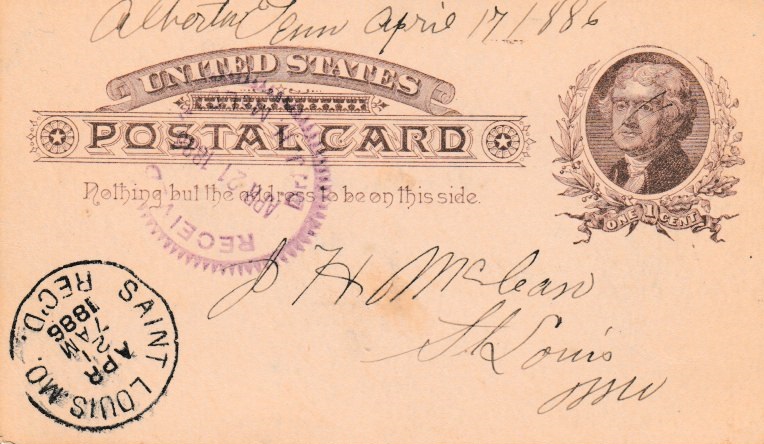 Alberton Tenn April 17/1886
UNITED STATES
POSTAL CARD
Nothing but the address to be on this side.
ONE 1 CENT
RECEIVED
APR 21 1886
DR. J.
J H McLean
St Louis
Mo
SAINT LOUIS. MO.
REC'D.
APR
7AM
1886